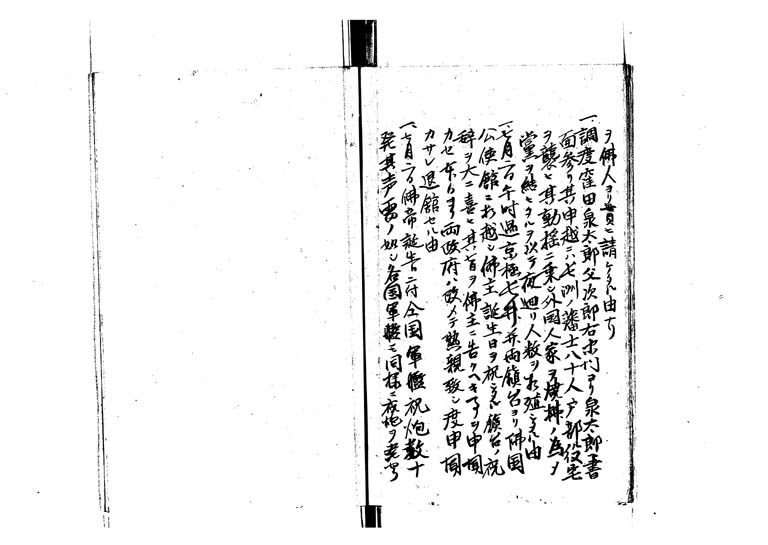 ヲ佛人ヨリ買ヒ請ケタル由ナリ
一調度窪田泉太郎父次郎右ヱ門ヨリ泉太郎ヘ書
面参リ其申越ニハ七州ノ藩士八十人戸部役宅
ヲ襲ヒ其動揺ニ乗シ外国人家ヲ焼拂ノ為メ
黨ヲ結ヒタルヲ以テ夜廻リ人数ヲ相殖シタル由
一七月二日午時過京極七 并両鎮台ヨリ佛国
公使館ニ相越シ佛主誕生日ヲ祝シタル鎮台ノ祝
辞ヲ大ニ喜ヒ其旨ヲ佛主ニ告クヘキ 申聞
カセ 両政府ハ改メテ懇親致シ度申聞
カサレ退館セル由
一七月二日佛帝誕告ニ付全国軍艦祝炮数十
発其声雷ノ如シ各国軍艦モ同様ニ祝炮ヲ発ス